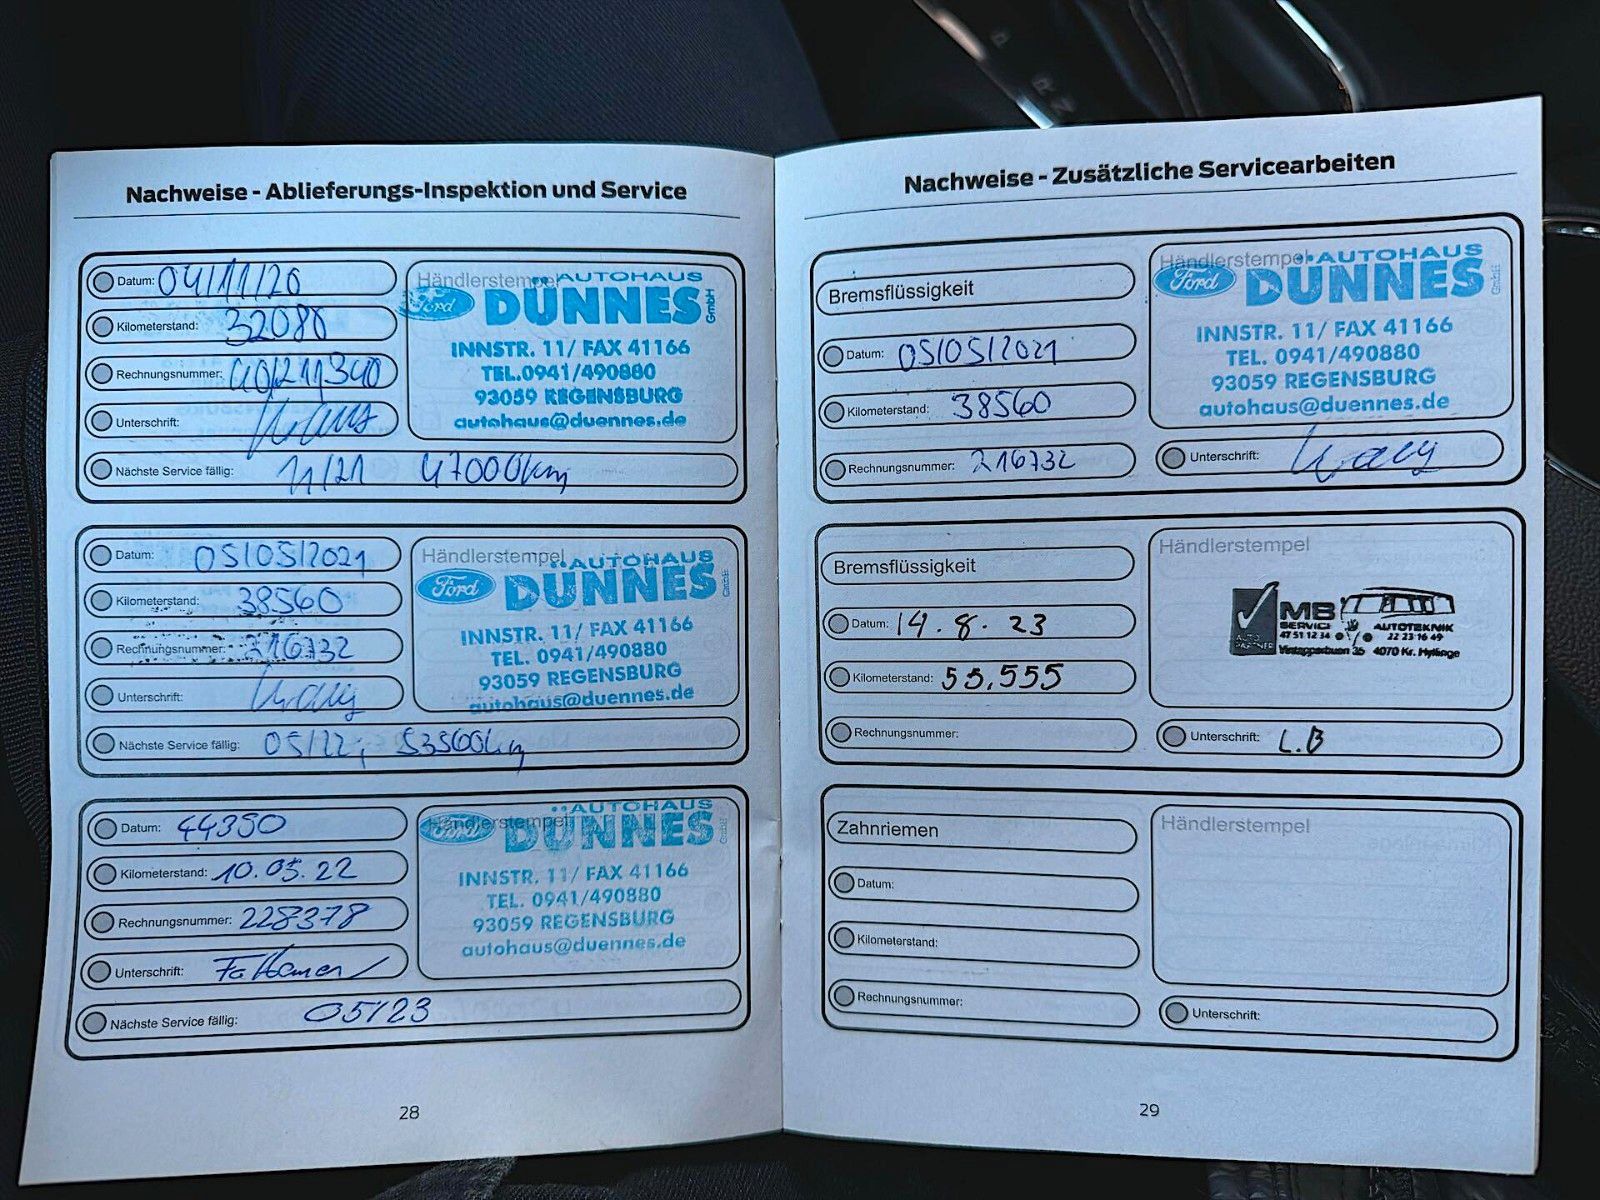 Nachweise - Ablieferungs-Inspektion und Service
Datum: 04/11/20
Kilometerstand: 32080
Rechnungsnummer:
Unterschrift:
Nächste Service fällig: 11/21 47000km
Händlerstempel
AUTOHAUS
Ford DÜNNES GmbH
INNSTR. 11/ FAX 41166
TEL.0941/490880
93059 REGENSBURG
autohaus@duennes.de
Datum: 05/05/2021
Kilometerstand: 38560
Rechnungsnummer: 216732
Unterschrift:
Nächste Service fällig: 05/22, 53560km
Händlerstempel
AUTOHAUS
Ford DÜNNES GmbH
INNSTR. 11/ FAX 41166
TEL. 0941/490880
93059 REGENSBURG
autohaus@duennes.de
Datum: 44350
Kilometerstand: 10.05.22
Rechnungsnummer: 228378
Unterschrift:
Nächste Service fällig: 05/23
Händlerstempel
AUTOHAUS
Ford DÜNNES GmbH
INNSTR. 11/ FAX 41166
TEL. 0941/490880
93059 REGENSBURG
autohaus@duennes.de
28
Nachweise - Zusätzliche Servicearbeiten
Bremsflüssigkeit
Datum: 05/05/2021
Kilometerstand: 38560
Rechnungsnummer: 216732
Händlerstempel
AUTOHAUS
Ford DÜNNES GmbH
INNSTR. 11/ FAX 41166
TEL. 0941/490880
93059 REGENSBURG
autohaus@duennes.de
Unterschrift:
Bremsflüssigkeit
Datum: 14.8.23
Kilometerstand: 55,555
Rechnungsnummer:
Händlerstempel
AUTO PARTNER
MB
SERVICE AUTOTEKNIK
47 51 12 34 22 23 16 49
35 4070 Kr. Hyllinge
Unterschrift: L.B
Zahnriemen
Datum:
Kilometerstand:
Rechnungsnummer:
Händlerstempel
Unterschrift:
29